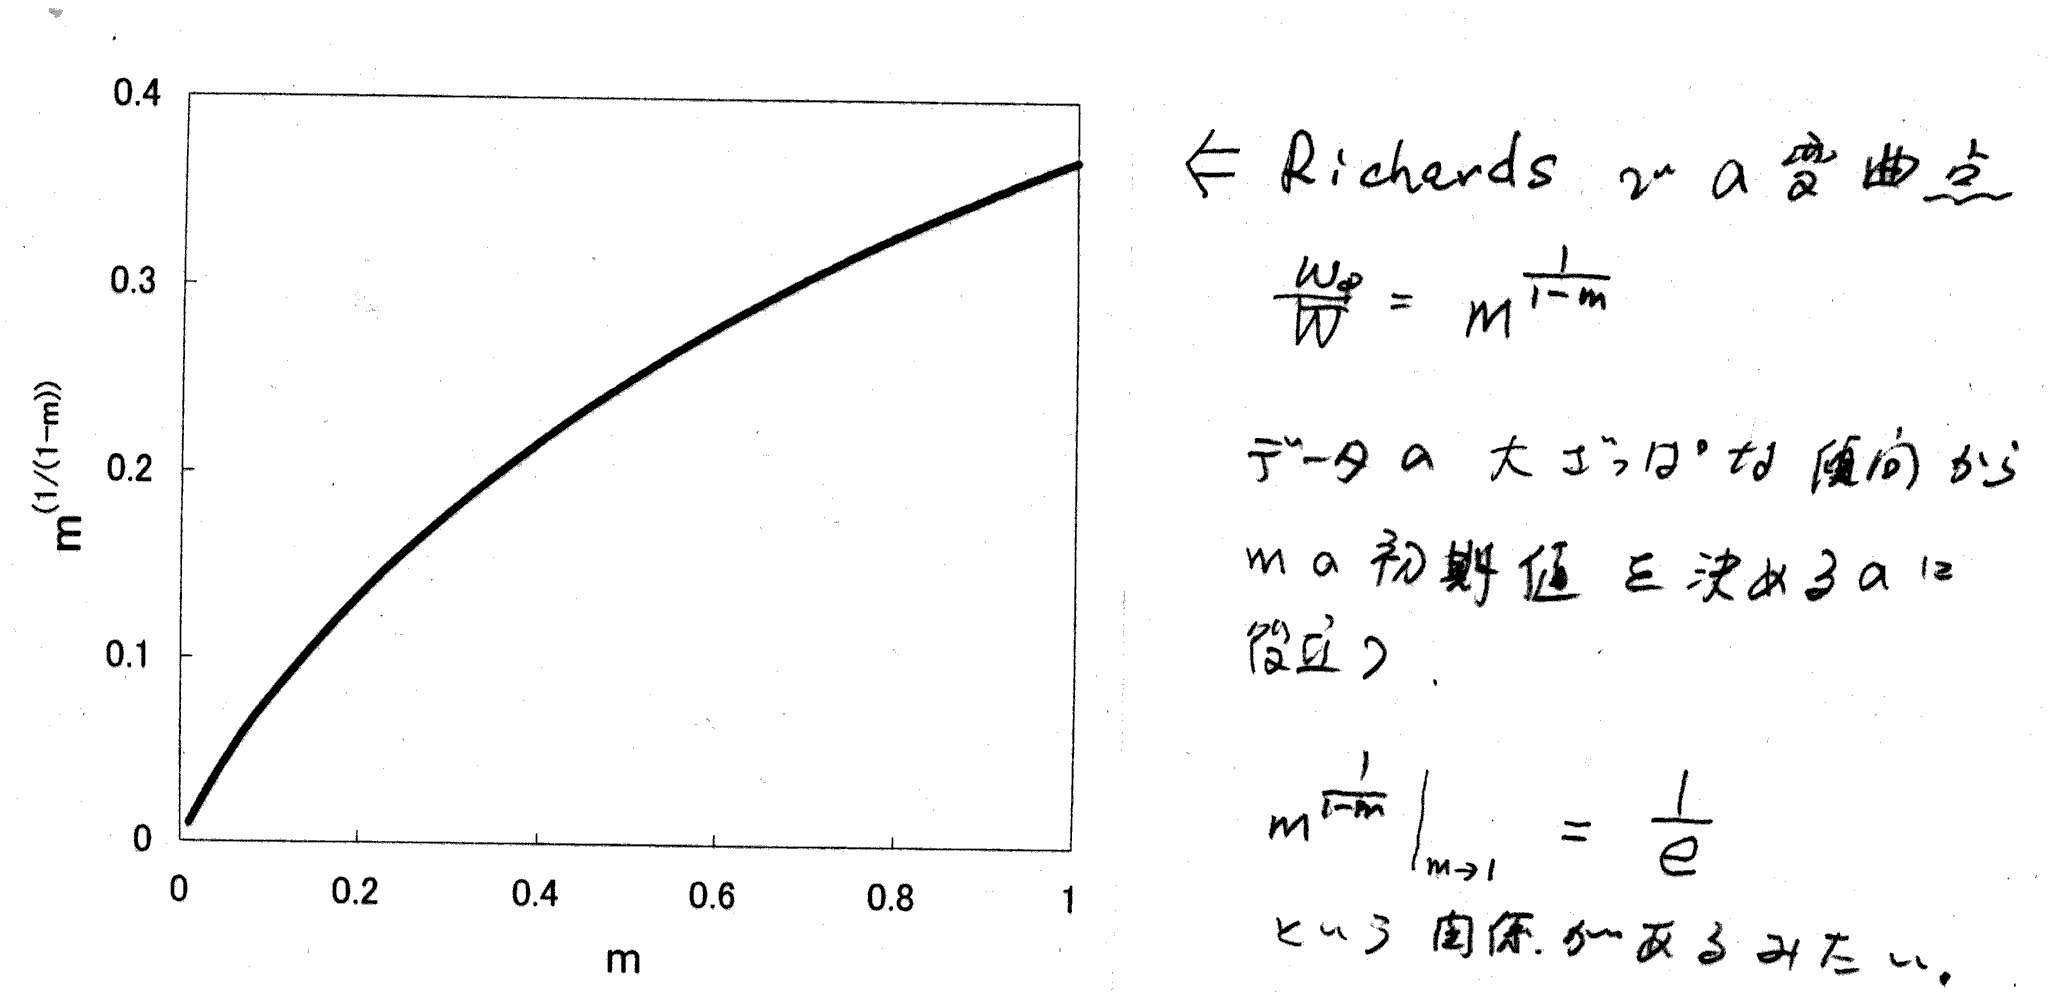 0.4
0.3
0.2
0.1
0
0 0.2 0.4 0.6 0.8 1
m
m^(1/(1-m))
⇐ Richards での変曲点
W∞/W = m^(1/(1-m))
データの大ざっぱな傾向から
mの初期値を決めるのに
役立つ.
m^(1/(1-m)) |m→1 = 1/e
という関係があるみたい.